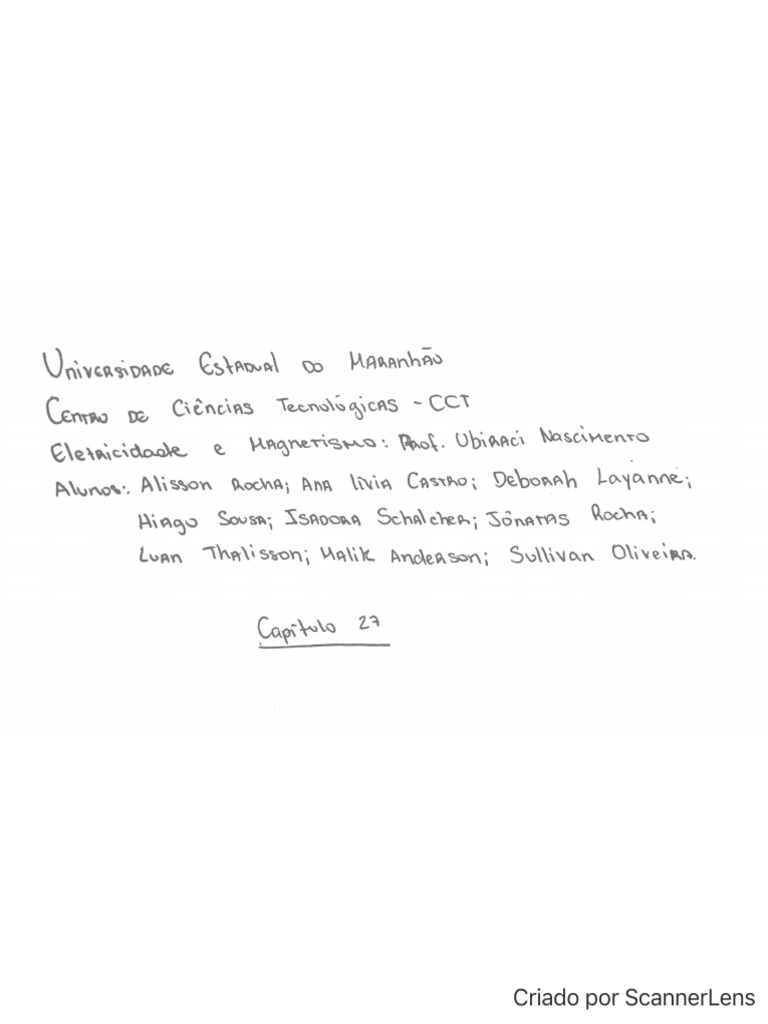 Universidade Estadual do Maranhão
Centro de Ciências Tecnológicas - CCT
Eletricidade e Magnetismo: Prof. Ubiraci Nascimento
Alunos: Alisson Rocha; Ana lívia Castro; Deborah Layanne;
Hiago Sousa; Isadora Schalcher; Jônatas Rocha;
Luan Thalisson; Malik Anderson; Sullivan Oliveira.
Capítulo 27
Criado por ScannerLens